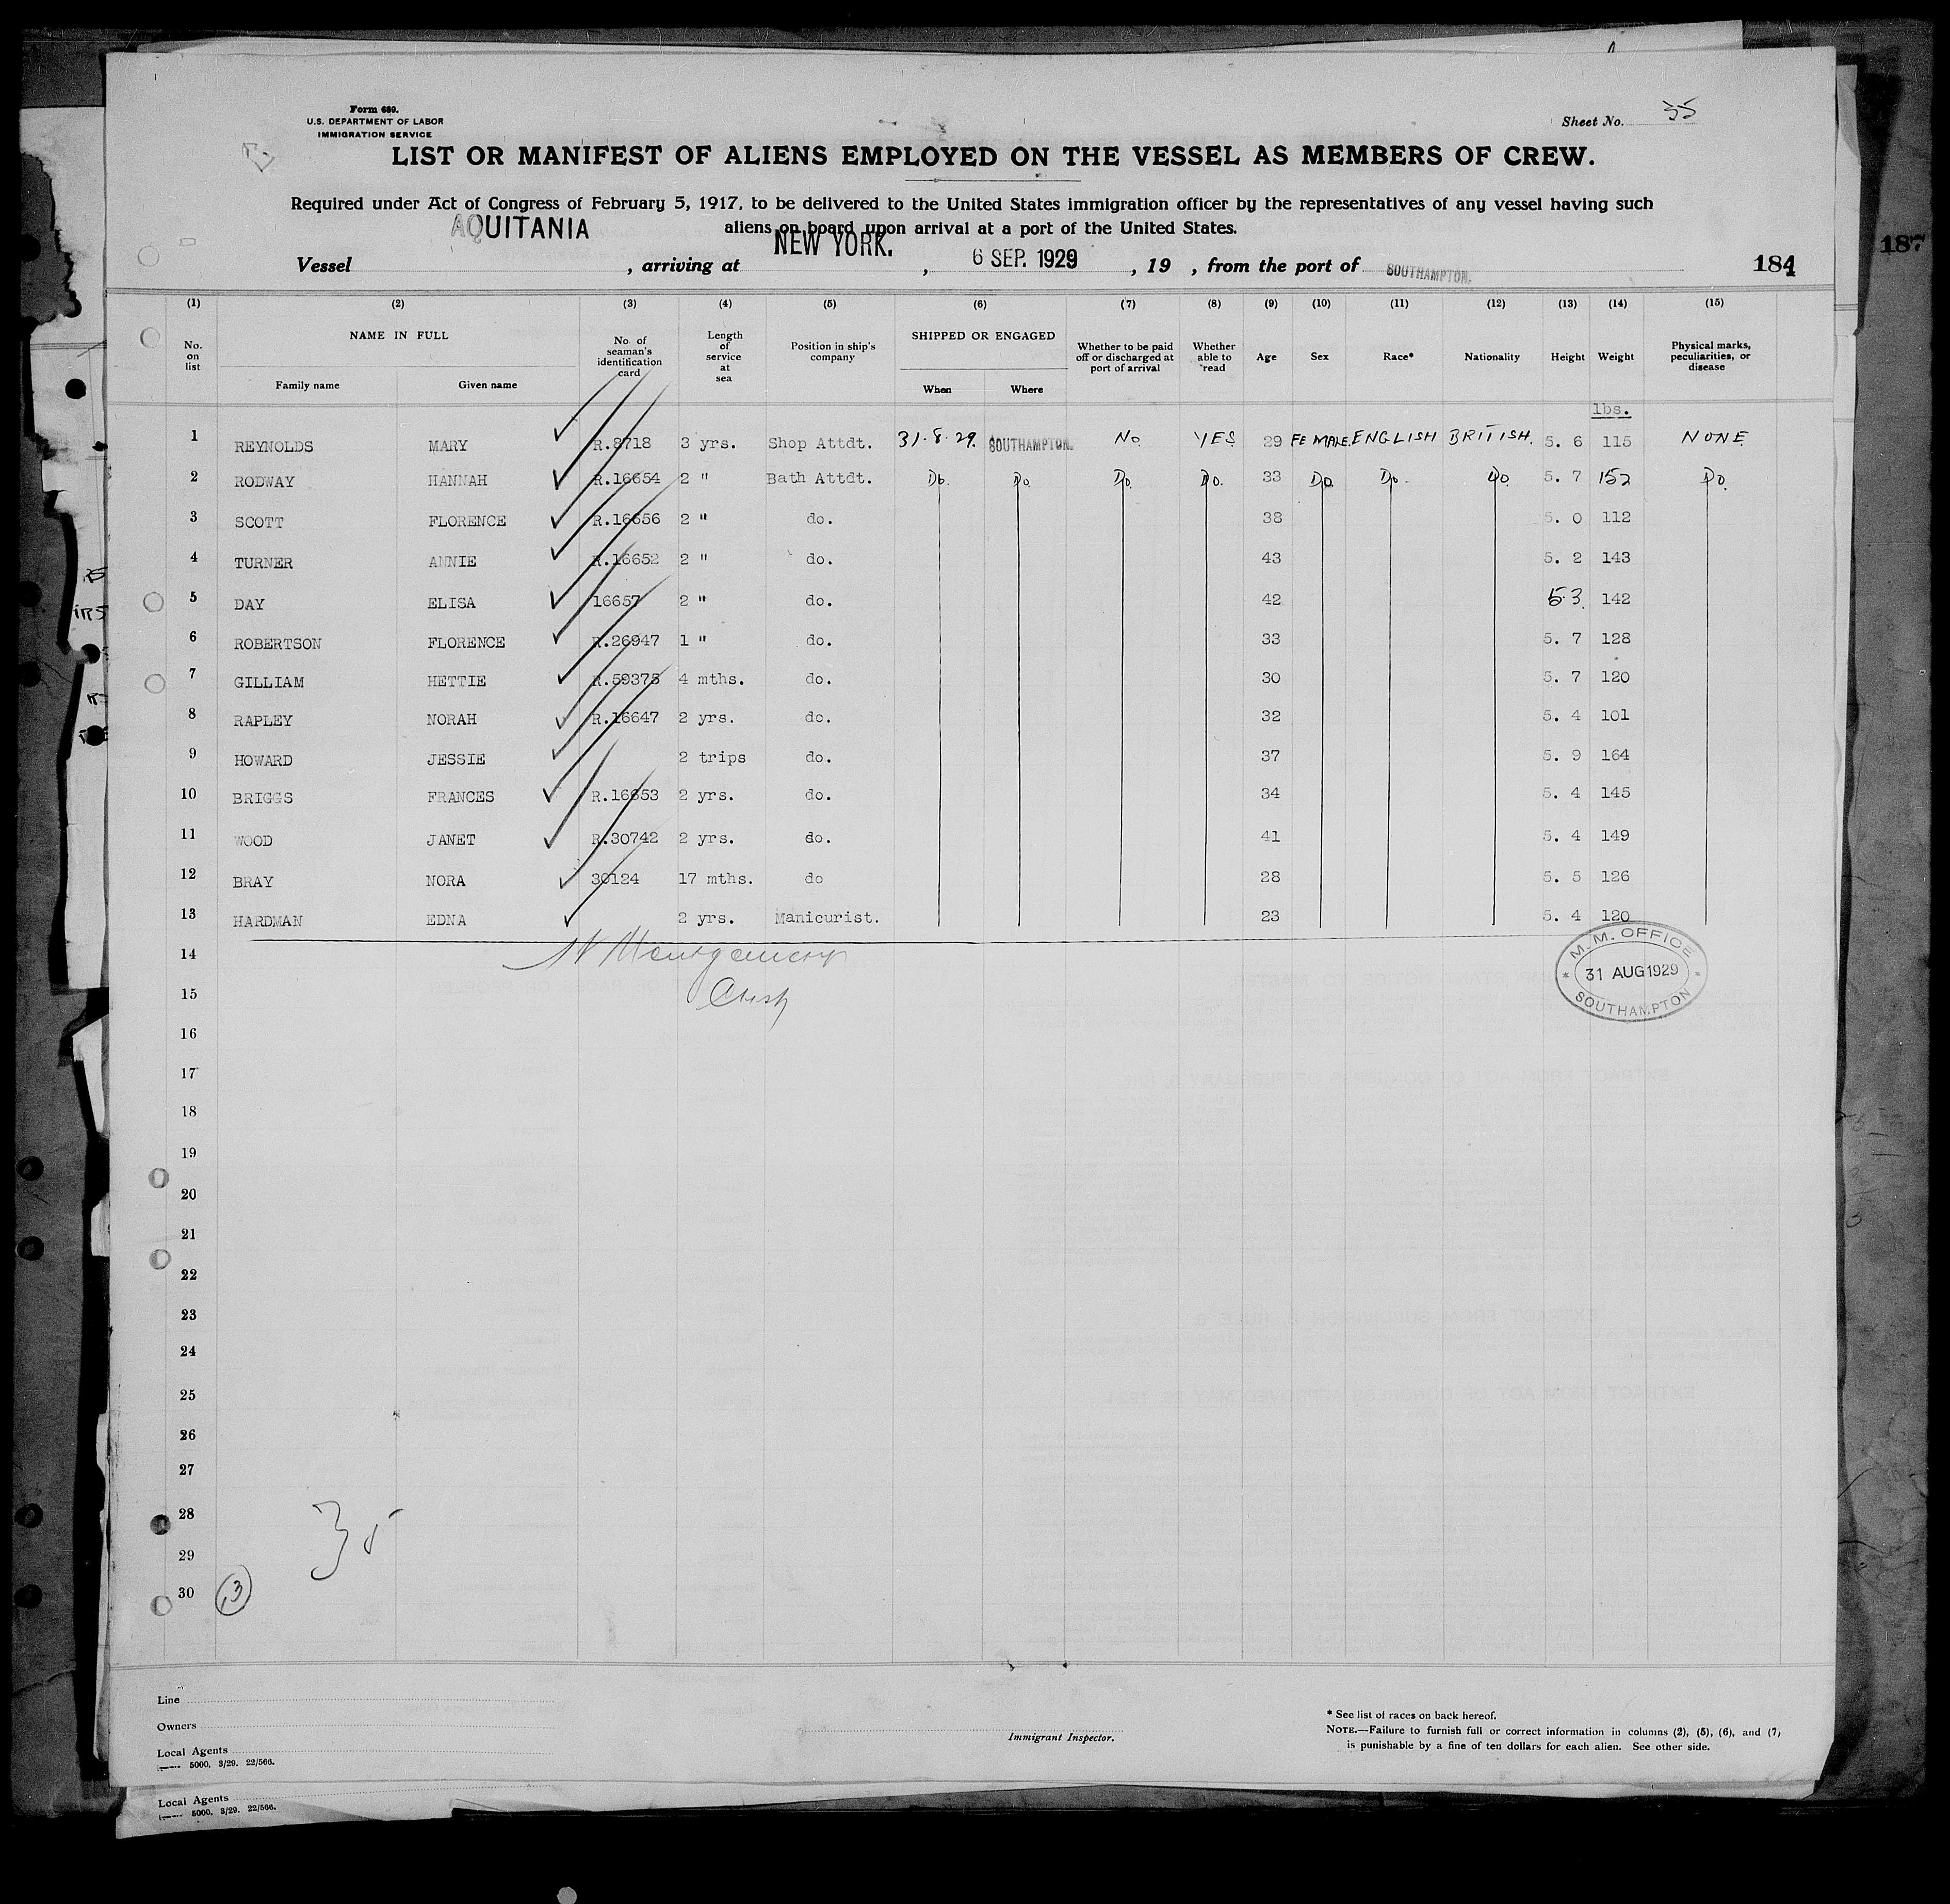 Form 689.
U.S. DEPARTMENT OF LABOR
IMMIGRATION SERVICE
Sheet No. 35
LIST OR MANIFEST OF ALIENS EMPLOYED ON THE VESSEL AS MEMBERS OF CREW.
Required under Act of Congress of February 5, 1917, to be delivered to the United States immigration officer by the representatives of any vessel having such
aliens on board upon arrival at a port of the United States.
Vessel AQUITANIA , arriving at NEW YORK. , 6 SEP. 1929 , 19 , from the port of SOUTHAMPTON.
184
187
(1) (2) (3) (4) (5) (6) (7) (8) (9) (10) (11) (12) (13) (14) (15)
No. on list NAME IN FULL Family name Given name No. of seaman's identification card Length of service at sea Position in ship's company SHIPPED OR ENGAGED When Where Whether to be paid off or discharged at port of arrival Whether able to read Age Sex Race* Nationality Height Weight Physical marks, peculiarities, or disease
lbs.
1 REYNOLDS MARY R.8718 3 yrs. Shop Attdt. 31.8.29. SOUTHAMPTON. No YES 29 FEMALE. ENGLISH BRITISH. 5. 6 115 NONE
2 RODWAY HANNAH R.16654 2 " Bath Attdt. Do. Do. Do. Do. 33 Do. Do. Do. 5. 7 152 Do.
3 SCOTT FLORENCE R.16656 2 " do. 38 5. 0 112
4 TURNER ANNIE R.16652 2 " do. 43 5. 2 143
5 DAY ELISA 16657 2 " do. 42 5.3. 142
6 ROBERTSON FLORENCE R.26947 1 " do. 33 5. 7 128
7 GILLIAM HETTIE R.59375 4 mths. do. 30 5. 7 120
8 RAPLEY NORAH R.16647 2 yrs. do. 32 5. 4 101
9 HOWARD JESSIE 2 trips do. 37 5. 9 164
10 BRIGGS FRANCES R.16653 2 yrs. do. 34 5. 4 145
11 WOOD JANET R.30742 2 yrs. do. 41 5. 4 149
12 BRAY NORA 30124 17 mths. do 28 5. 5 126
13 HARDMAN EDNA 2 yrs. Manicurist. 23 5. 4 120
14 Montgomery
15
M.M. OFFICE
31 AUG 1929
SOUTHAMPTON
16
17
18
19
20
21
22
23
24
25
26
27
28
35
29
30 13
Line
Owners
Local Agents
5000. 3/29. 22/566.
Immigrant Inspector.
* See list of races on back hereof.
NOTE.—Failure to furnish full or correct information in columns (2), (5), (6), and (7,
is punishable by a fine of ten dollars for each alien. See other side.
Local Agents
5000. 3/29. 22/566.